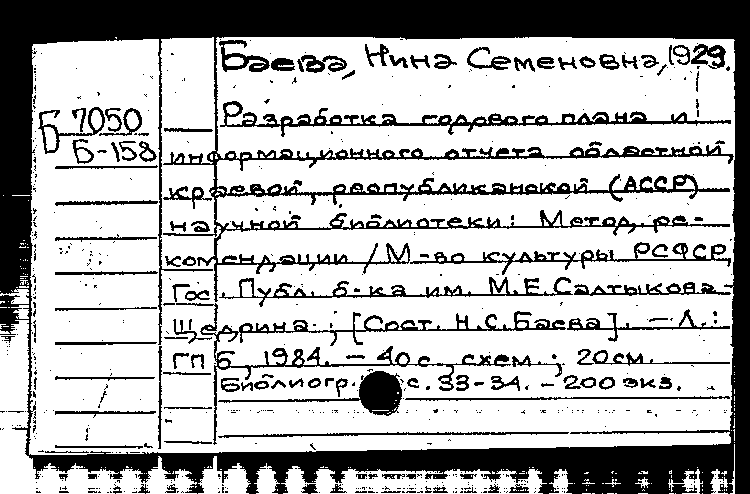 Баева, Нина Семеновна, 1929.
Б 7050
Б-158
Разработка годового плана и
информационного отчета областной,
краевой, республиканской (АССР)
научной библиотеки: Метод. ре-
комендации / М-во культуры РСФСР,
Гос. Публ. б-ка им. М.Е.Салтыкова-
Щедрина ; [Сост. Н.С.Баева]. — Л.:
ГПБ, 1984. — 40 с., схем. ; 20 см.
Библиогр. с. 33-34. — 200 экз.